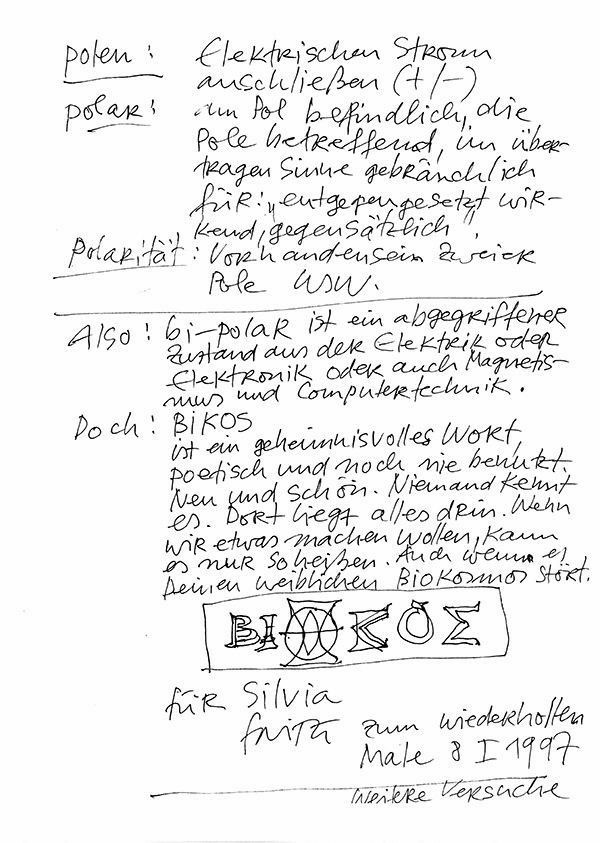 polen: Elektrischen Strom
anschließen (+/-)
polar: am Pol befindlich, die
Pole betreffend, im über-
tragen Sinne gebräuchlich
für: „entgegengesetzt wir-
kend, gegensätzlich".
Polarität: Vorhandensein zweier
Pole usw.
Also: bi-polar ist ein abgegriffener
Zustand aus der Elektrik oder
Elektronik oder auch Magnetis-
mus und Computertechnik.
Doch: BIKOS
ist ein geheimnisvolles Wort,
poetisch und noch nie benutzt.
Neu und schön. Niemand kennt
es. Dort liegt alles drin. Wenn
wir etwas machen wollen, kann
es nur so heißen. Auch wenn es
Deinen weiblichen BioKosmos stört.
BIKOΣ
für Silvia
Fritz zum wiederholten
Male 8 I 1997
weitere Versuche